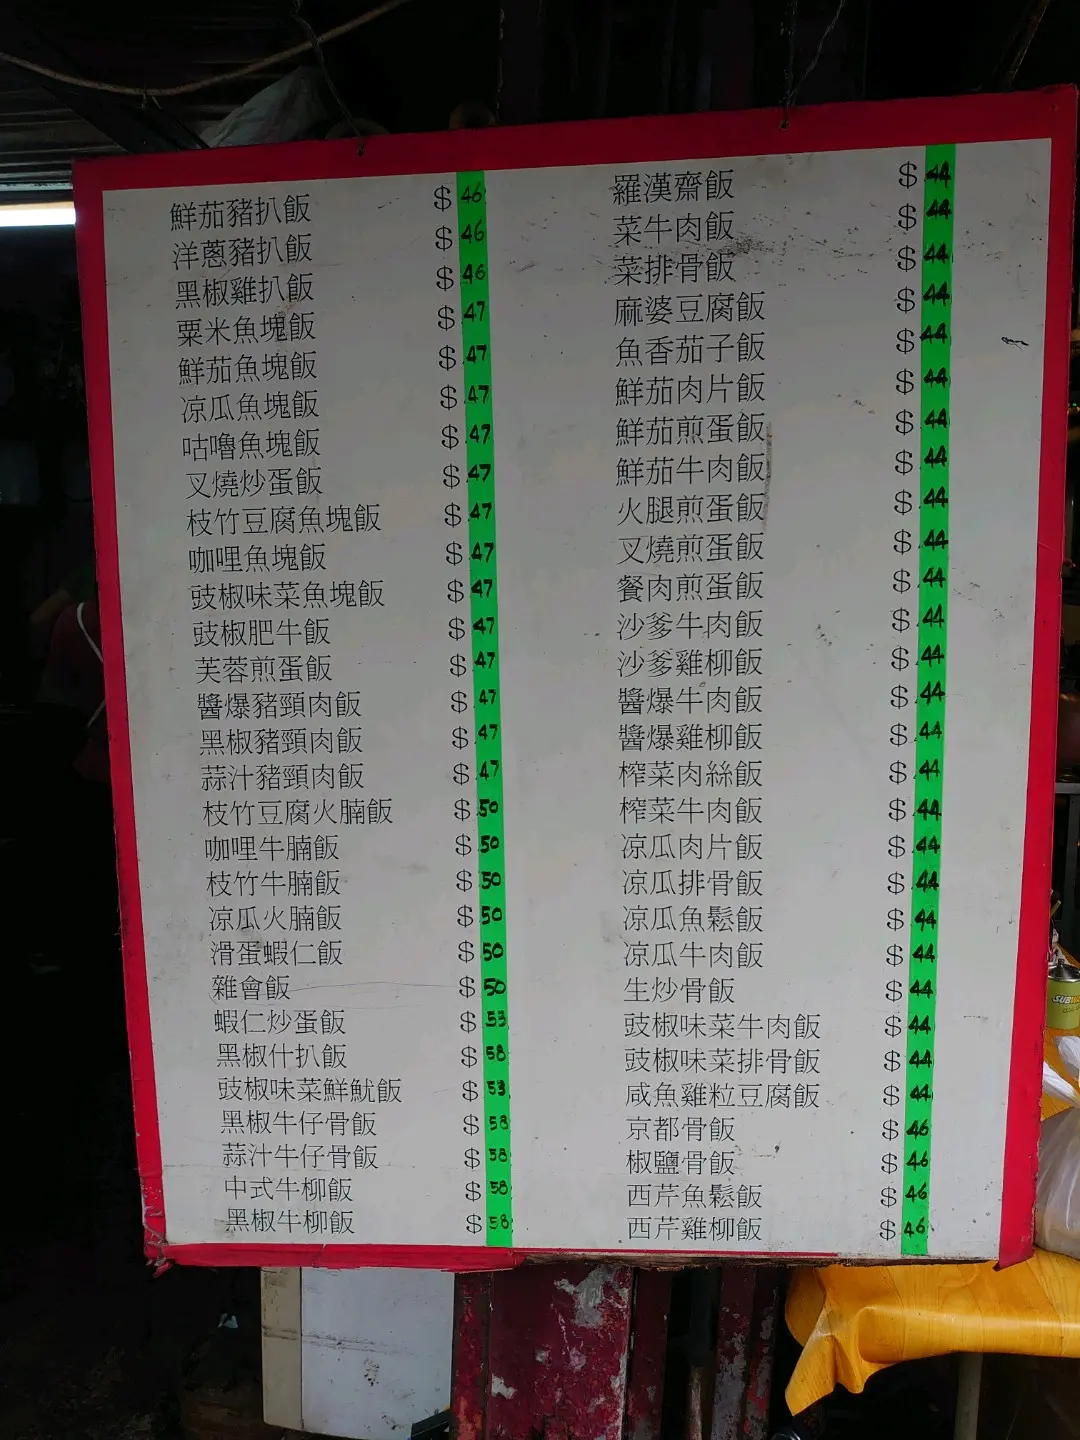 鮮茄豬扒飯 $46
洋蔥豬扒飯 $46
黑椒雞扒飯 $46
粟米魚塊飯 $47
鮮茄魚塊飯 $47
凉瓜魚塊飯 $47
咕嚕魚塊飯 $47
叉燒炒蛋飯 $47
枝竹豆腐魚塊飯 $47
咖哩魚塊飯 $47
豉椒味菜魚塊飯 $47
豉椒肥牛飯 $47
芙蓉煎蛋飯 $47
醬爆豬頸肉飯 $47
黑椒豬頸肉飯 $47
蒜汁豬頸肉飯 $47
枝竹豆腐火腩飯 $50
咖哩牛腩飯 $50
枝竹牛腩飯 $50
凉瓜火腩飯 $50
滑蛋蝦仁飯 $50
雜會飯 $50
蝦仁炒蛋飯 $53
黑椒什扒飯 $58
豉椒味菜鮮魷飯 $53
黑椒牛仔骨飯 $58
蒜汁牛仔骨飯 $58
中式牛柳飯 $58
黑椒牛柳飯 $58
羅漢齋飯 $44
菜牛肉飯 $44
菜排骨飯 $44
麻婆豆腐飯 $44
魚香茄子飯 $44
鮮茄肉片飯 $44
鮮茄煎蛋飯 $44
鮮茄牛肉飯 $44
火腿煎蛋飯 $44
叉燒煎蛋飯 $44
餐肉煎蛋飯 $44
沙爹牛肉飯 $44
沙爹雞柳飯 $44
醬爆牛肉飯 $44
醬爆雞柳飯 $44
榨菜肉絲飯 $44
榨菜牛肉飯 $44
凉瓜肉片飯 $44
凉瓜排骨飯 $44
凉瓜魚鬆飯 $44
凉瓜牛肉飯 $44
生炒骨飯 $44
豉椒味菜牛肉飯 $44
豉椒味菜排骨飯 $44
咸魚雞粒豆腐飯 $44
京都骨飯 $46
椒鹽骨飯 $46
西芹魚鬆飯 $46
西芹雞柳飯 $46